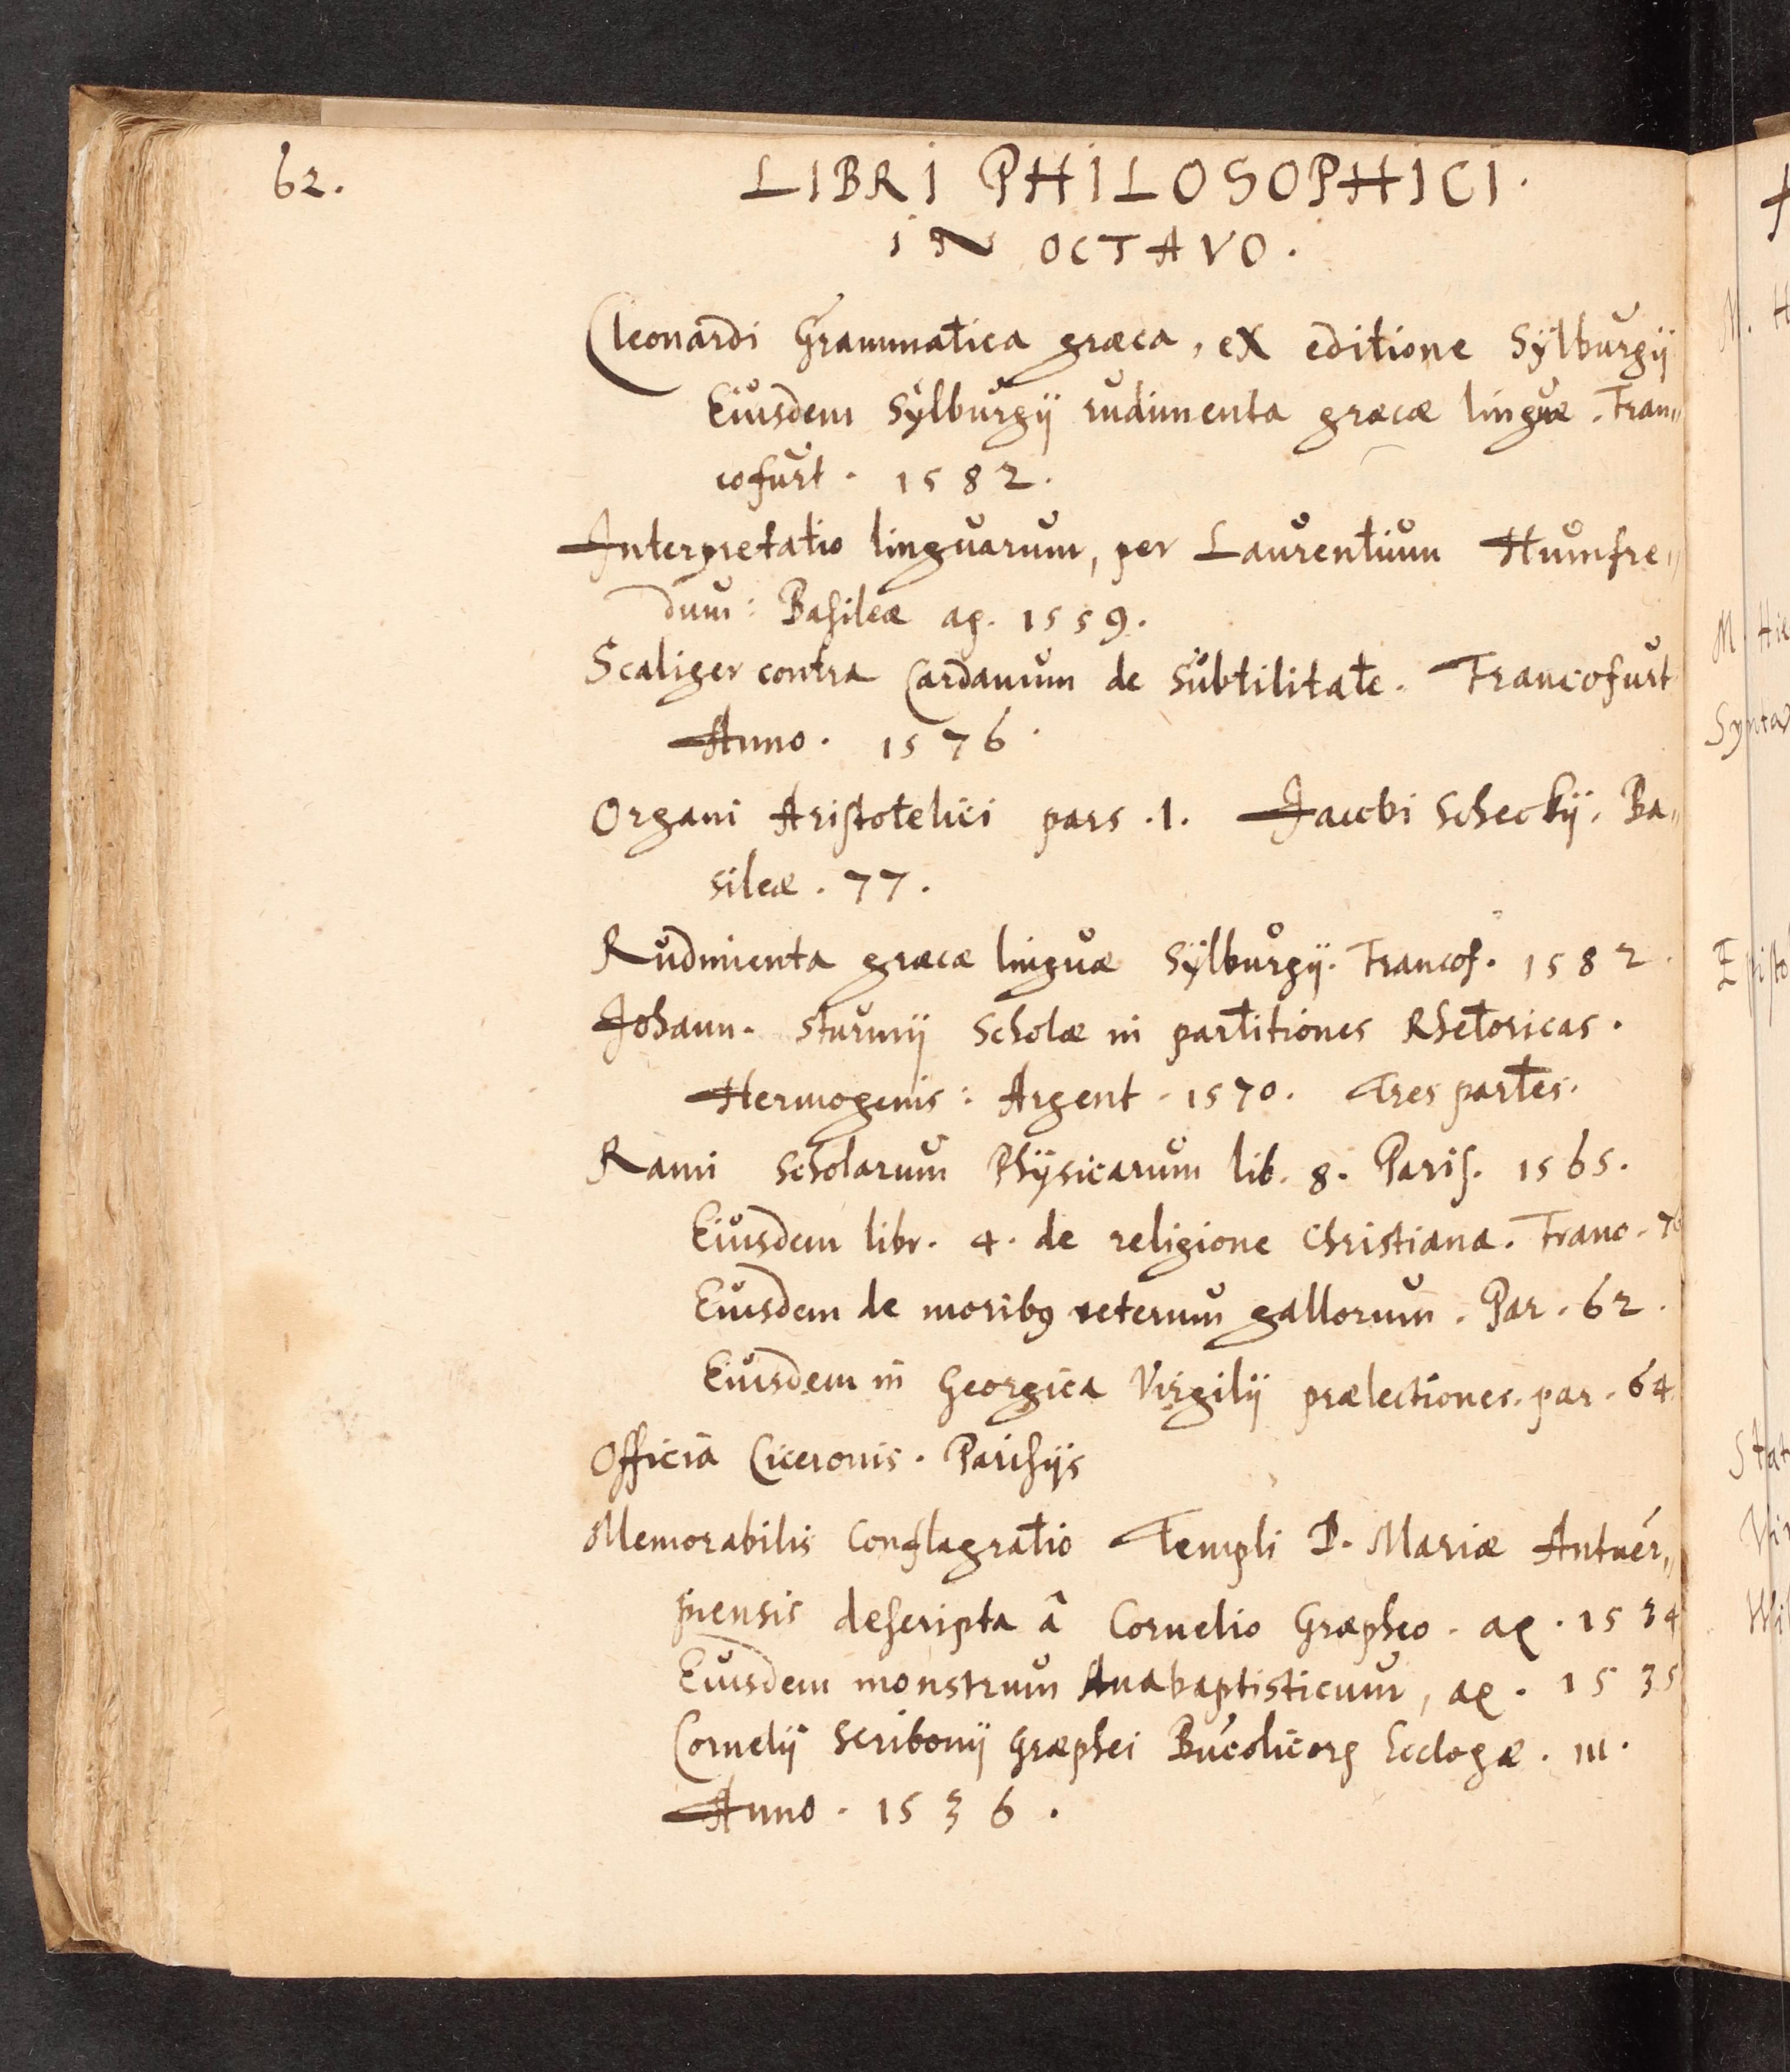 62.
LIBRI PHILOSOPHICI.
IN OCTAVO.
Cleonardi Grammatica græca, ex editione Sylburgij
Eiusdem Sylburgij rudimenta græcæ linguæ. Fran„
cofurt. 1582.
Interpretatio linguarum, per Laurentium Humfre„
dum: Basileæ ao. 1559.
Scaliger contra Cardanum de Subtilitate. Francofurt
Anno. 1576.
Organi Aristotelici pars .1. Jacobi Scheckij. Ba„
sileæ. 77.
Rudmienta græcæ linguæ Sylburgij. Francof. 1582.
Johann. Sturmij Scholæ in partitiones Rhetoricas.
Hermogenis: Argent. 1570. Tres partes.
Rami Scholarum Physicarum lib. 8. Paris. 1565.
Eiusdem libr. 4. de religione Christiana. Franc. 76
Eiusdem de moribꝰ veterum gallorum. Par. 62.
Eiusdem in Georgica Virgilij prælectiones. par. 64.
Officia Ciceronis. Parisijs
Memorabilis Conflagratio Templi D. Mariæ Antuer„
piensis descripta â Cornelio Græpheo. ao. 1534
Eiusdem monstrum Anabaptisticum, ao. 1535
Cornelij Scribonij Græphei Bucolicorꝫ Eclogæ. III.
Anno. 1536.